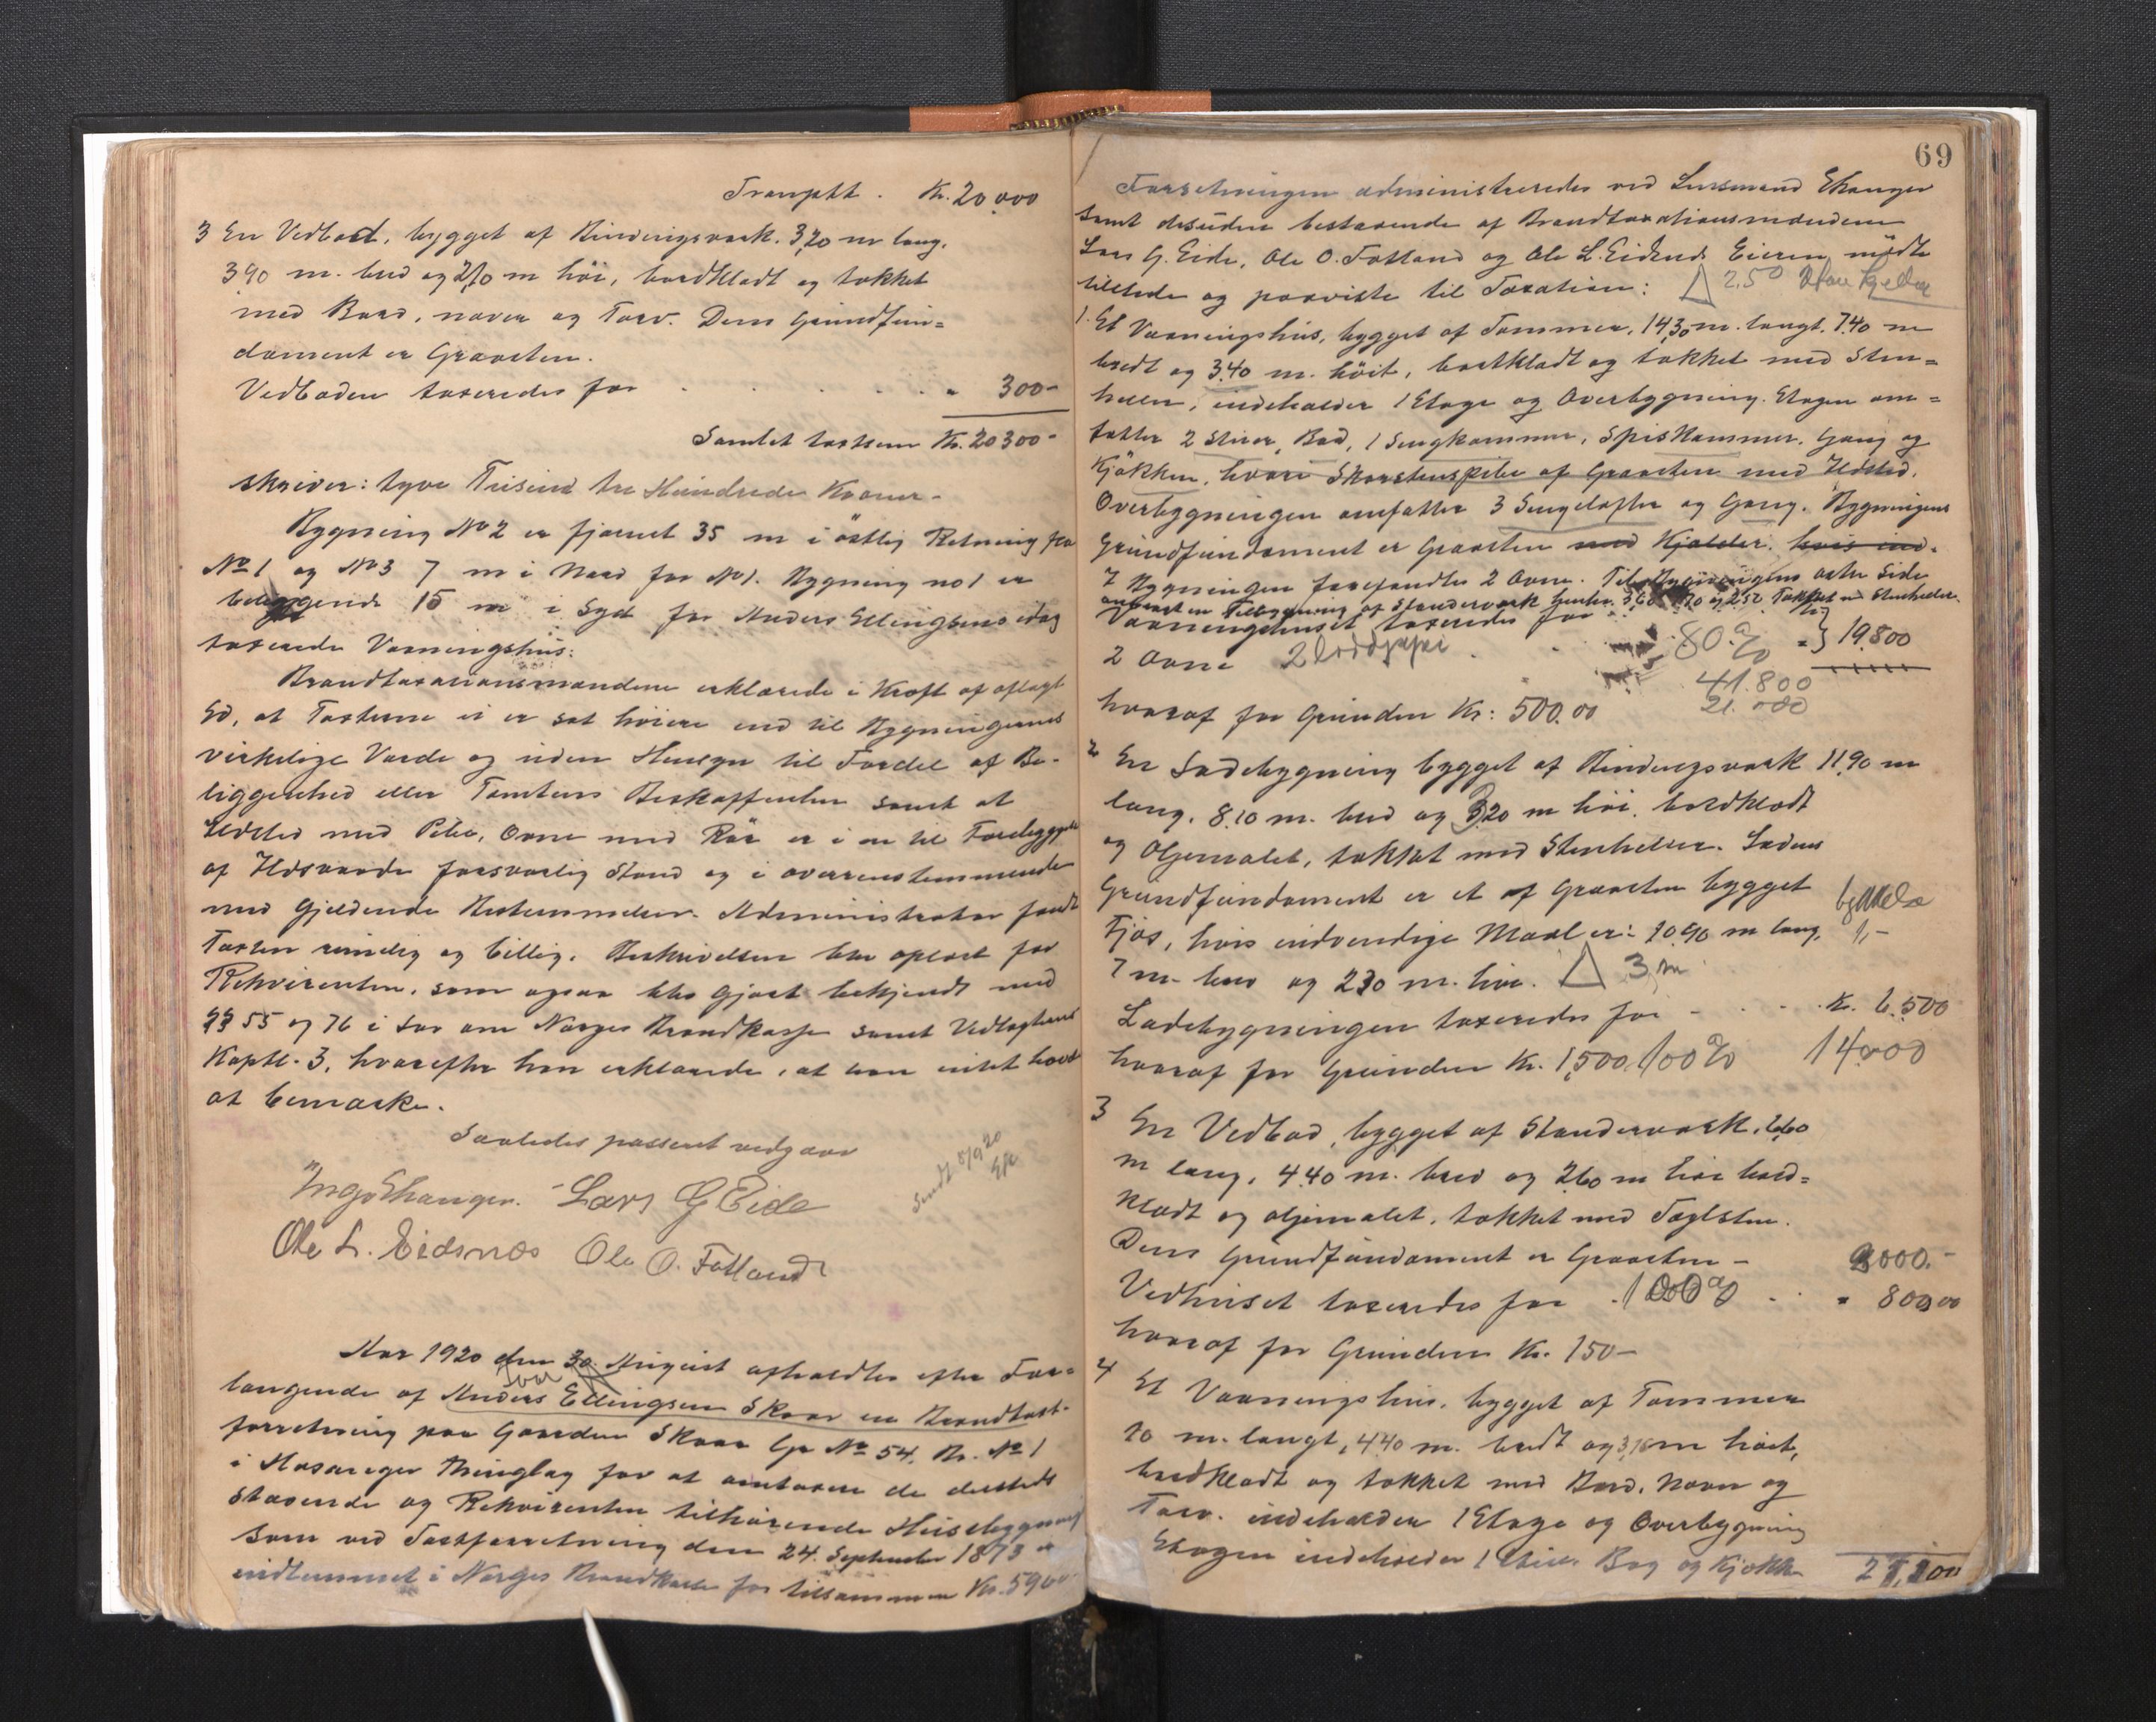 Transpkt . Kr. 20,000
3 En Vedbod, bygget af Bindingsværk. 3,20 m lang,
3.90 m. bred og 2,10 m höi, bordklædt og tækket
med Bord, næver og Torv. Dens Grundfun=
dament er Graasten.
Vedboden taxeredes for . . . . . " 300-
Samlet takstsum Kr. 20300-
skriver: tyve Tusind tre Hundrede Kroner-
Bygning No 2 er fjernet 35 m i östlig Retning fra
No 1 og No 3 7 m i Nord for No 1. Bygning no 1 er
beliggende 15 m i Syd for Anders Ellingsens idag
taxerede Vaaningshus.
Brandtaxationsmændene erklærede i Kraft af aflagt
Ed, at Taxterne ei er sat höiere end til Bygningernes
virkelige Værde og uden Hensyn til Fordel af Be-
liggenhed eller Tomtens Beskaffenhed samt at
Ildsted med Pibe, Ovne med Rör er i en til Forebyggelse
af Ildsvaade forsvarlig Stand og i overensstemmende
med gjeldende Bestemmelser. Administrator fandt
Taxten rimelig og billig. Beskrivelsen blev oplæst for
Rekvirenten, som ogsaa blev gjort bekjendt med
§§ 55 og 76 i Lov om Norges Brandkasse samt Vedtægternes
Kaptl. 3, hvorefter han erklærede, at han intet havde
at bemærke.
Saaledes passeret vedgaar
Inge Ekanger. Lars G Eide
Ole L. Eidsnes Ole O. Fotland
Sendt 8/9 20
Aar 1920 den 30. August afholdtes efter For=
langende af Anders Ellingsen Skaar en Brandtaxt-
Ivar
forretning paa Gaarden Skaar Gr No 54, Br. No 1
i Hosanger Thinglag for at omtaxere de dersteds
staaende og Rekvirenten tilhörende Husebygninger
som ved Taxtforretning den 24. September 1873 er
indlemmet i Norges Brandkasse for tilsammen Kr. 5960
69
Forretningen administreredes ved Lensmand Ekanger
samt desuden bestaaende af Brandtaxationsmændene
Lars G. Eide, Ole O. Fotland og Ole L. Eidsnes. Eieren mödte
tilstede og paaviste til Taxation: 2.50 kjelder
1. Et Vaaningshus, bygget af Tømmer, 14,30 m. langt. 7.40 m
bredt og 3.40 m. höit, bordklædt og tækket med Sten=
heller, indeholder 1 Etage og Overbygning. Etagen om=
fatter 2 Stuer, Bod, 1 Sengkammer, Spiskammer, Gang og
Kjökken, hvori Skorstenspibe af Graasten med Ildsted.
Overbygningen omfatter 3 Sengelofter og Gang. Bygningens
Grundfundament er Graasten med Kjælder, hvis ind-
I Bygningen forefandtes 2 Ovne. Til Bygningens østre Side
en Tilbygning af Standerværk 3,60 og 2,50 Tækket m Stenheller.
Vaaningshuset taxeredes for . . . 80 %
2 Ovne . . . " } 19.800
41.800
21.000
hvoraf for Grunden Kr: 500.00
2 En Ladebygning bygget af Bindingsværk 11,90 m
lang, 8.10 m. bred og 3,20 m höi. bordklædt
og Oljemalet, tækket med Stenheller. Ladens
Grundfundament er et af Graasten bygget
Fjös, hvis indvendige Maal er: 10.90 m lang, 1,-
7 m. bred og 2,30 m. höi. 3 m
Ladebygningen taxeredes for - . . Kr. 6.500
hvoraf for Grunden Kr. 1,500. 100 % 14.000
3 En Vedbod, bygget af Standerværk. 6,60
m lang, 4.40 m. bred og 2,60 m höi bord=
klædt og oljemalet, tækket med Taglsten.
Dens Grundfundament er Graasten - 2000.-
Vedhuset taxeredes for . 100 % . . " 800,00
hvoraf for Grunden Kr. 150-
4 Et Vaaningshus, bygget af Tømmer
10 m. langt, 4.40 m. bredt og 3,10 m höit,
bordklædt og tækket med Bord. Næver og
Torv. indeholder 1 Etage og Overbygning
Etagen indeholder 1 Stue. Bog og Kjökken 27,100